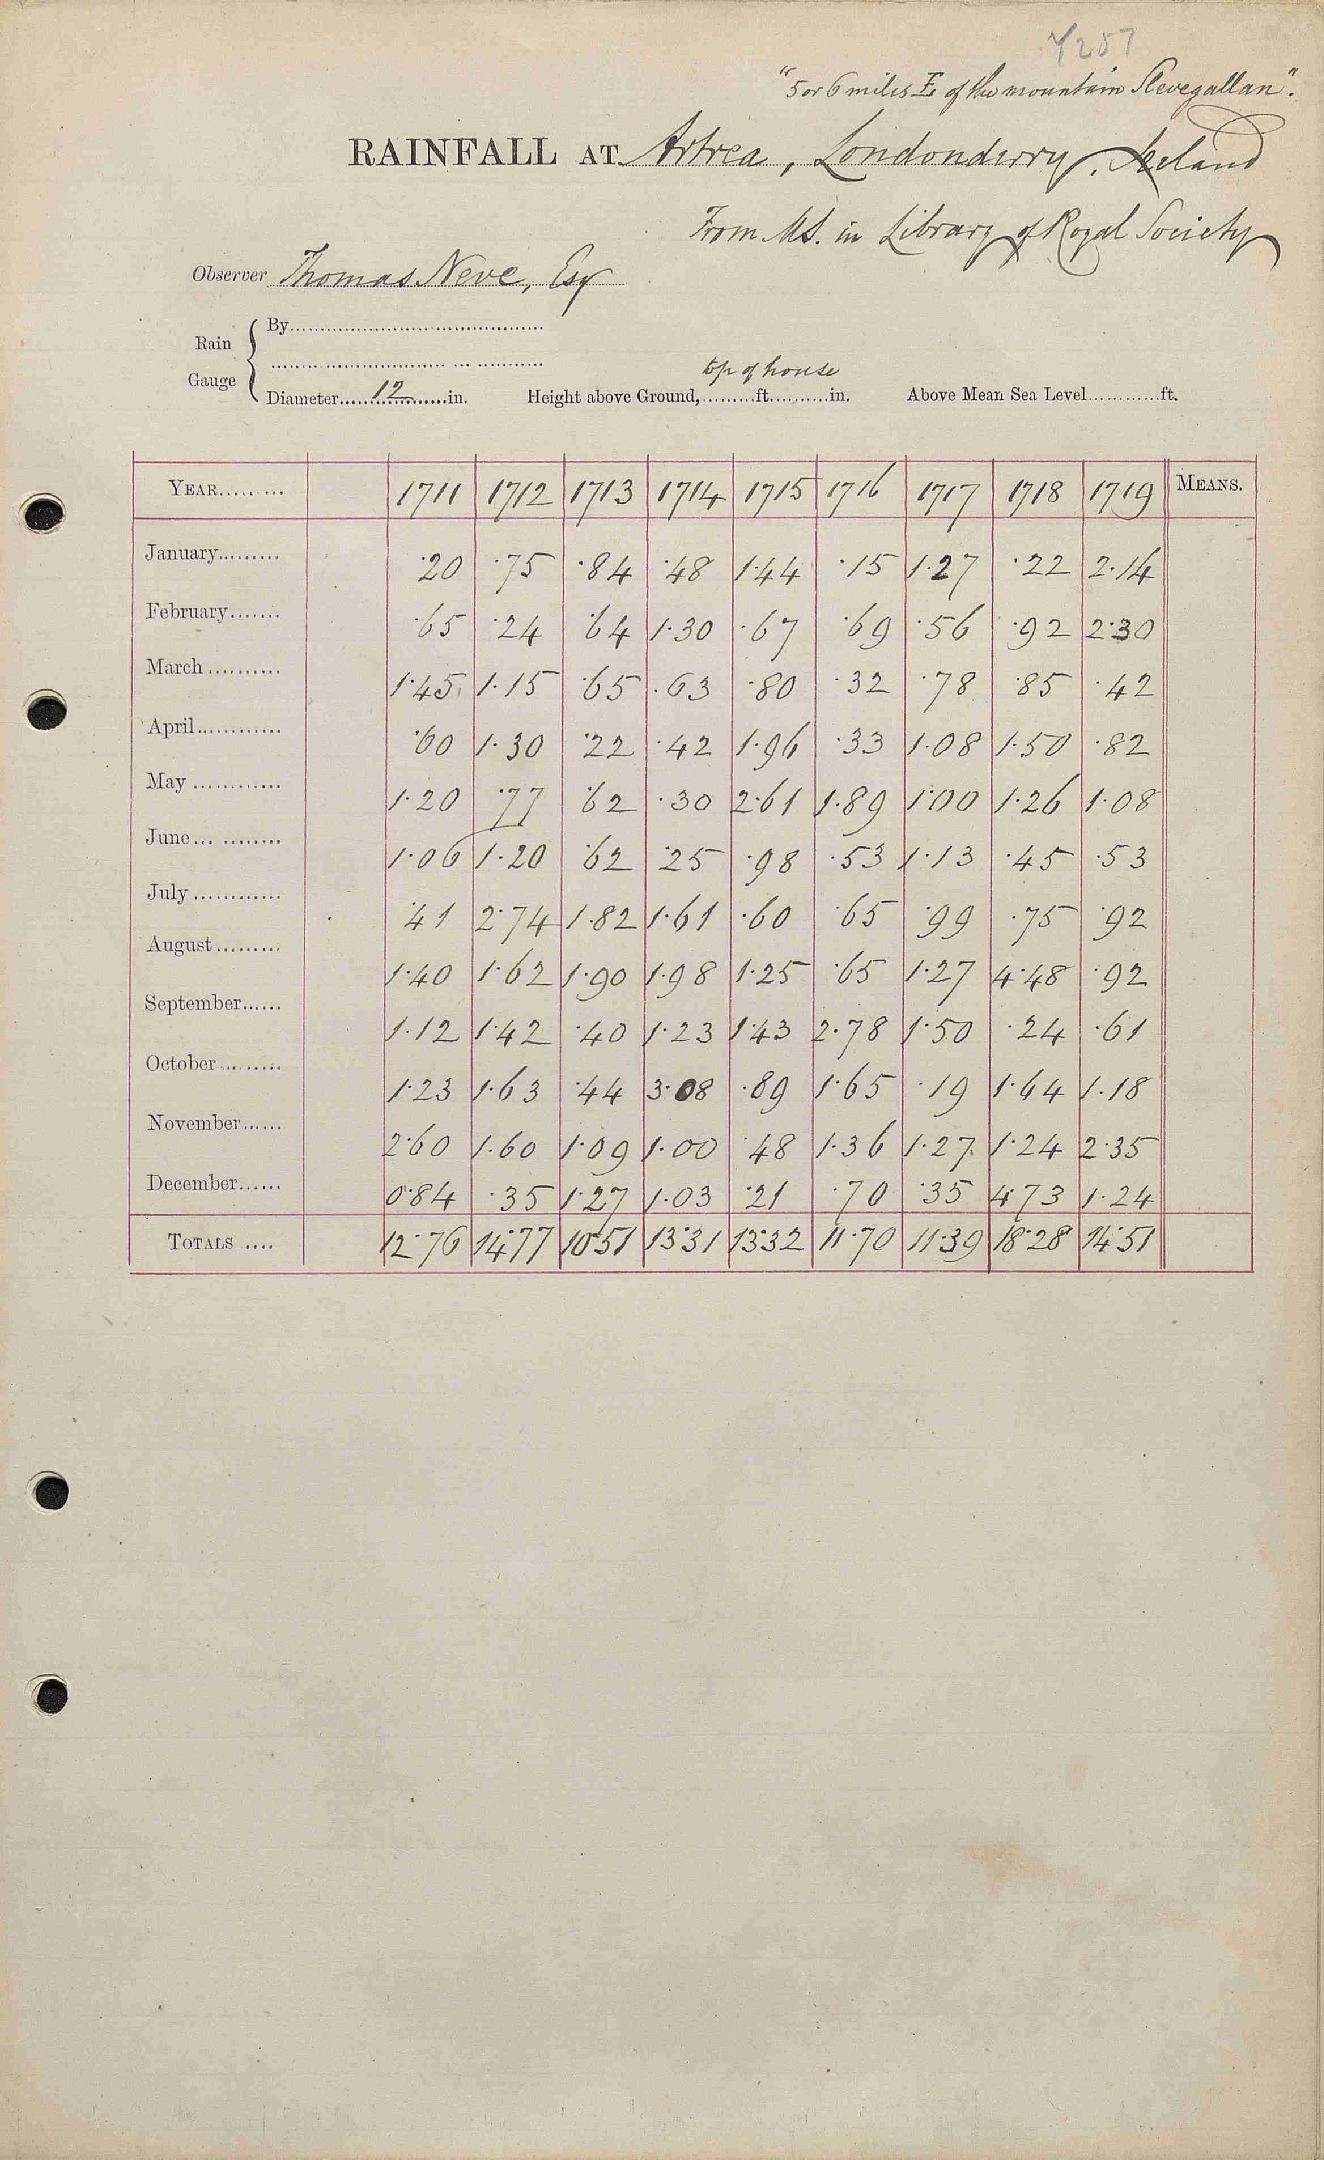 Y257
"5 or 6 miles E of the mountain Slevegallan".
RAINFALL AT Artrea, Londonderry, Ireland
From MS. in Library of Royal Society
Observer Thomas Neve, Esq
Rain Gauge
By
top of house
Diameter 12 in. Height above Ground, ft. in. Above Mean Sea Level ft.
YEAR 1711 1712 1713 1714 1715 1716 1717 1718 1719 MEANS.
January ·20 ·75 ·84 ·48 1·44 ·15 1·27 ·22 2·14
February ·65 ·24 ·64 1·30 ·67 ·69 ·56 ·92 2·30
March 1·45 1·15 ·65 ·63 ·80 ·32 ·78 ·85 ·42
April ·60 1·30 ·22 ·42 1·96 ·33 1·08 1·50 ·82
May 1·20 ·77 ·62 ·30 2·61 1·89 1·00 1·26 1·08
June 1·06 1·20 ·62 ·25 ·98 ·53 1·13 ·45 ·53
July ·41 2·74 1·82 1·61 ·60 ·65 ·99 ·75 ·92
August 1·40 1·62 1·90 1·98 1·25 ·65 1·27 4·48 ·92
September 1·12 1·42 ·40 1·23 1·43 2·78 1·50 ·24 ·61
October 1·23 1·63 ·44 3·08 ·89 1·65 ·19 1·64 1·18
November 2·60 1·60 1·09 1·00 ·48 1·36 1·27 1·24 2·35
December 0·84 ·35 1·27 1·03 ·21 ·70 ·35 4·73 1·24
TOTALS 12·76 14·77 10·51 13·31 13·32 11·70 11·39 18·28 14·51